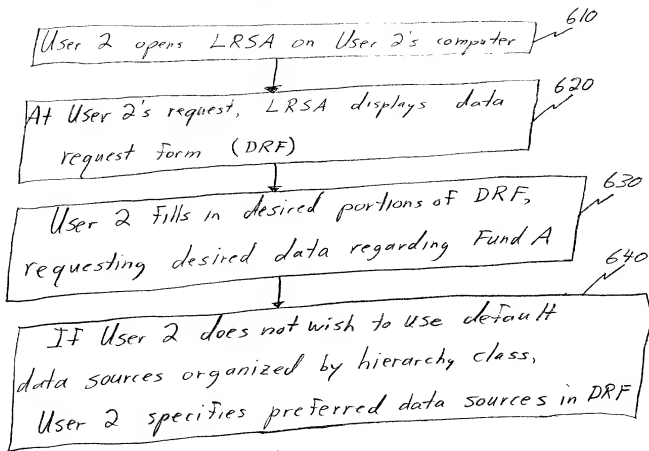 User 2 opens LRSA on User 2's computer
610
At User 2's request, LRSA displays data
request form (DRF)
620
User 2 fills in desired portions of DRF,
requesting desired data regarding Fund A
630
If User 2 does not wish to use default
data sources organized by hierarchy class,
User 2 specifies preferred data sources in DRF
640